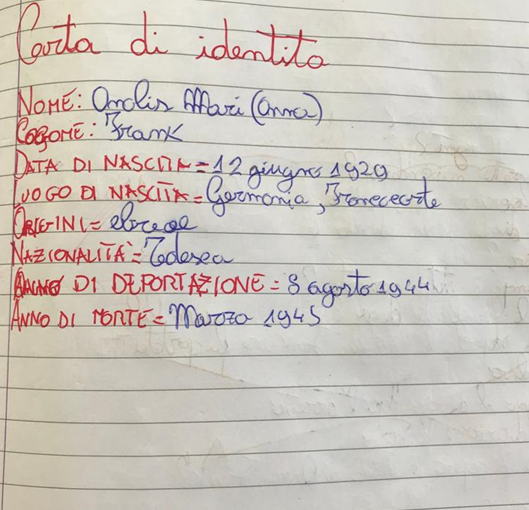 Carta di identita
NOME: Onelis Mari (Anna)
COGOME: Frank
DATA DI NASCITA = 12 giugno 1929
LUOGO DI NASCITA = Germania, Francecorte
ORIGINI = ebree
NAZIONALITÀ = Tedesca
ANNO DI DEPORTAZIONE = 8 agosto 1944
ANNO DI MORTE = Marzo 1945